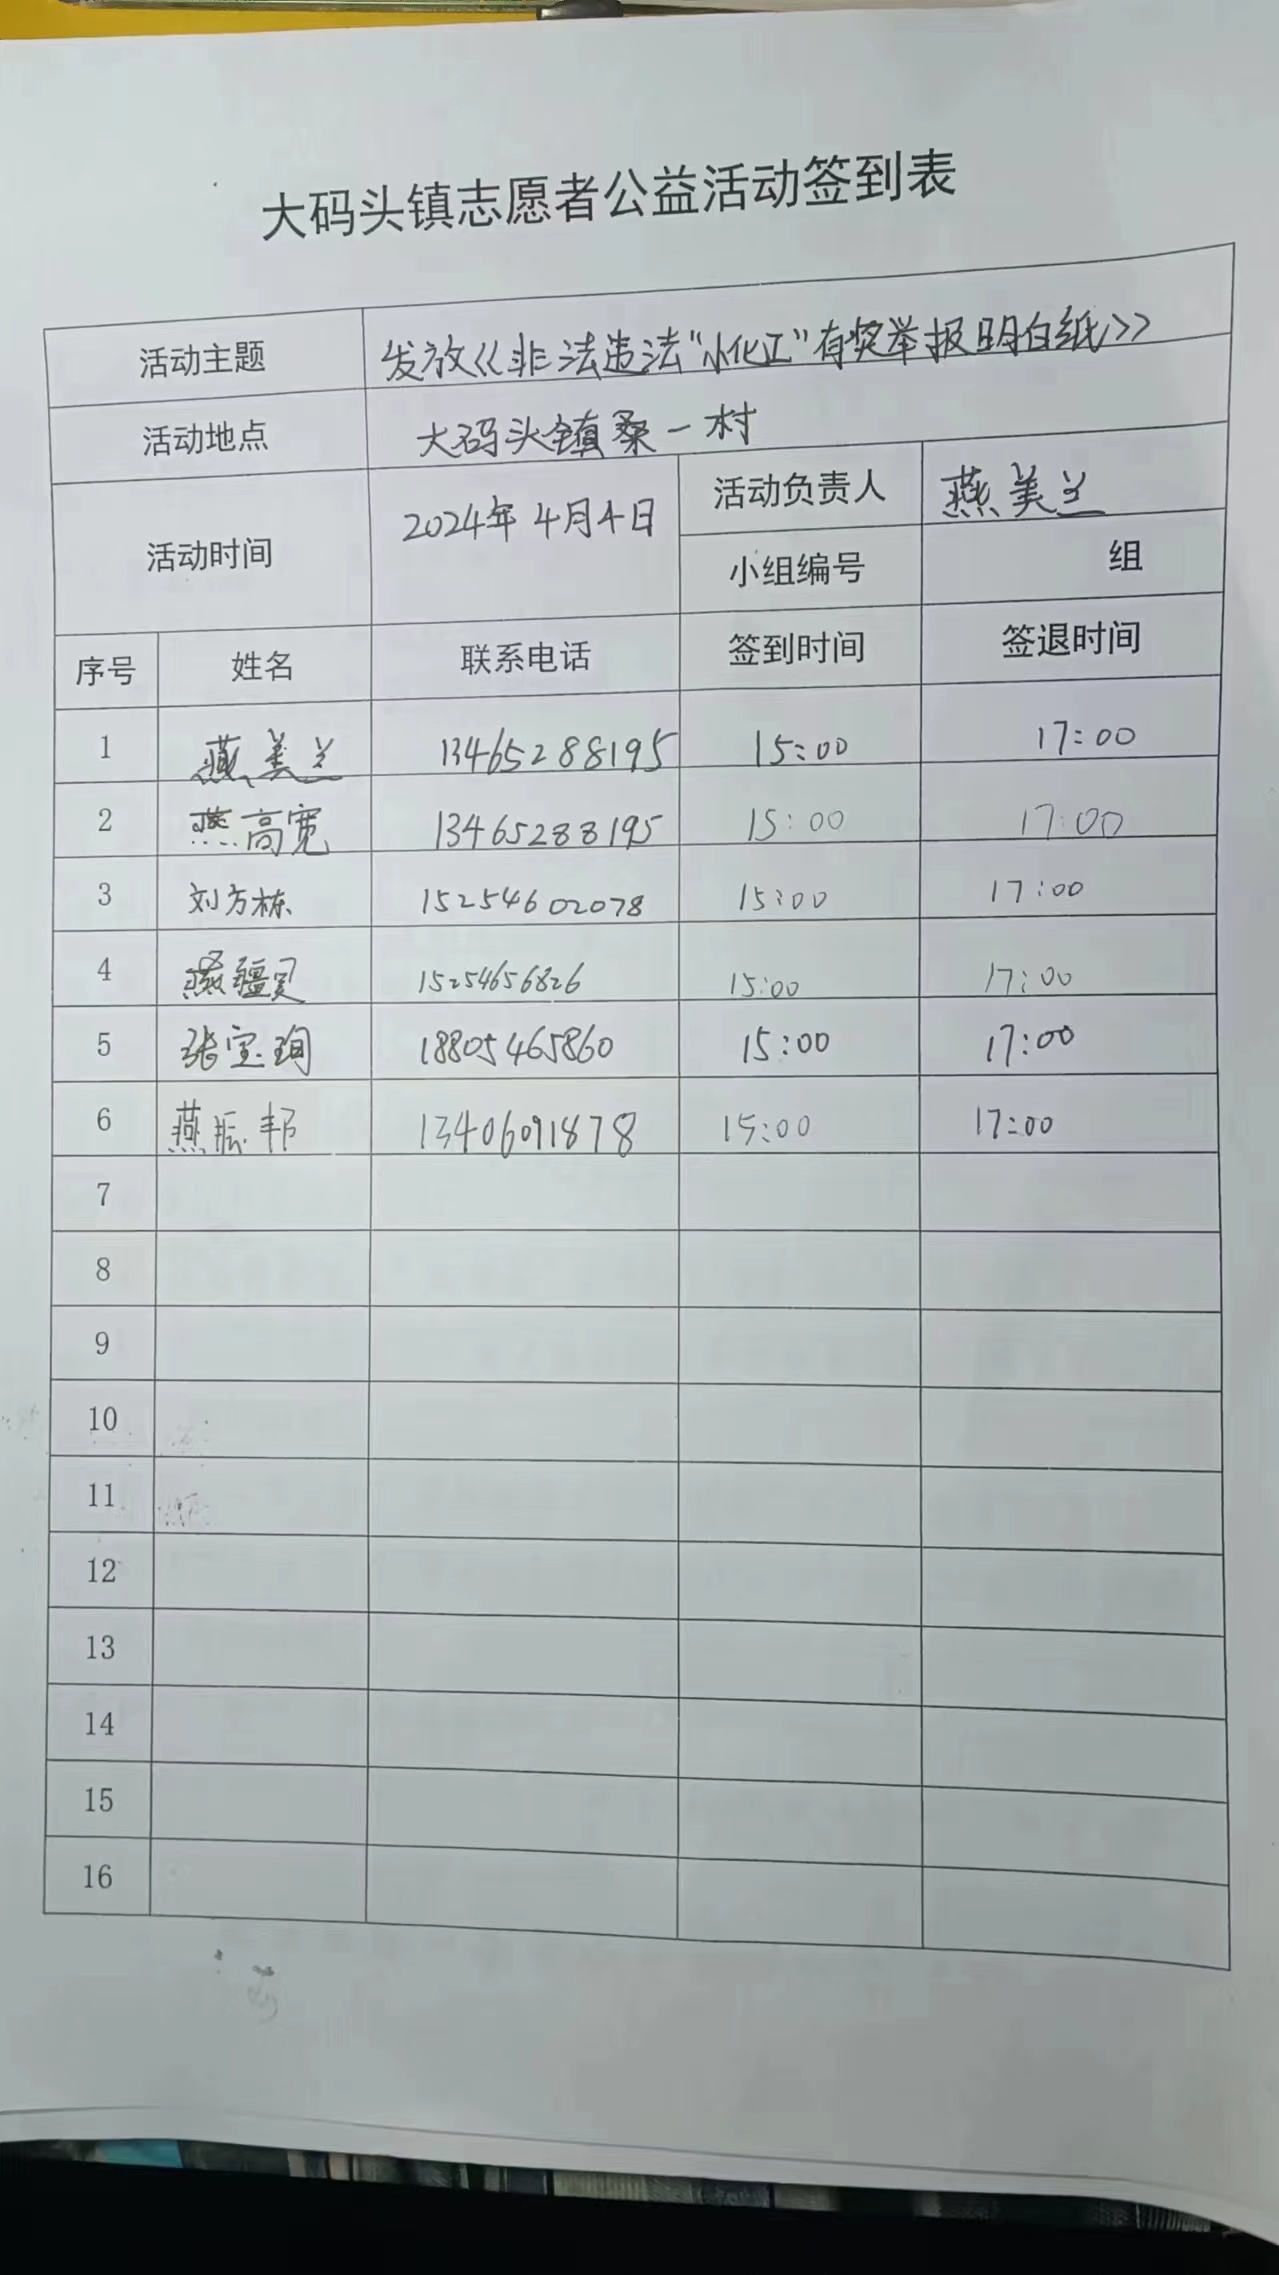 大码头镇志愿者公益活动签到表
活动主题 发放《非法违法“小化工”有奖举报明白纸》
活动地点 大码头镇桑一村
活动时间 2024年4月4日 活动负责人 燕美兰
小组编号 组
序号 姓名 联系电话 签到时间 签退时间
1 燕美兰 13465288195 15:00 17:00
2 燕高宽 13465288195 15:00 17:00
3 刘方栋 15254602078 15:00 17:00
4 燕疆 15254656826 15:00 17:00
5 张宝珣 18805465860 15:00 17:00
6 燕振邦 13406091878 15:00 17:00
7
8
9
10
11
12
13
14
15
16